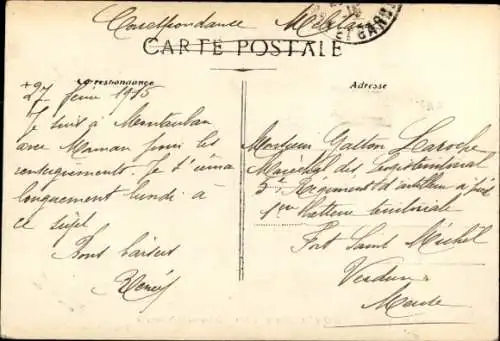 Correspondance Militaire
CARTE POSTALE
Correspondance
Adresse
27 février 1915
Je suis à Montauban
avec Maman pour les
renseignements. Je t'écrirai
longuement lundi à
ce sujet
Bons baisers
René
Monsieur Gaston Laroche
Maréchal des Logis territorial
5e Régiment d'artillerie à pied
1ère Batterie territoriale
Fort Saint Michel
Verdun
Meuse